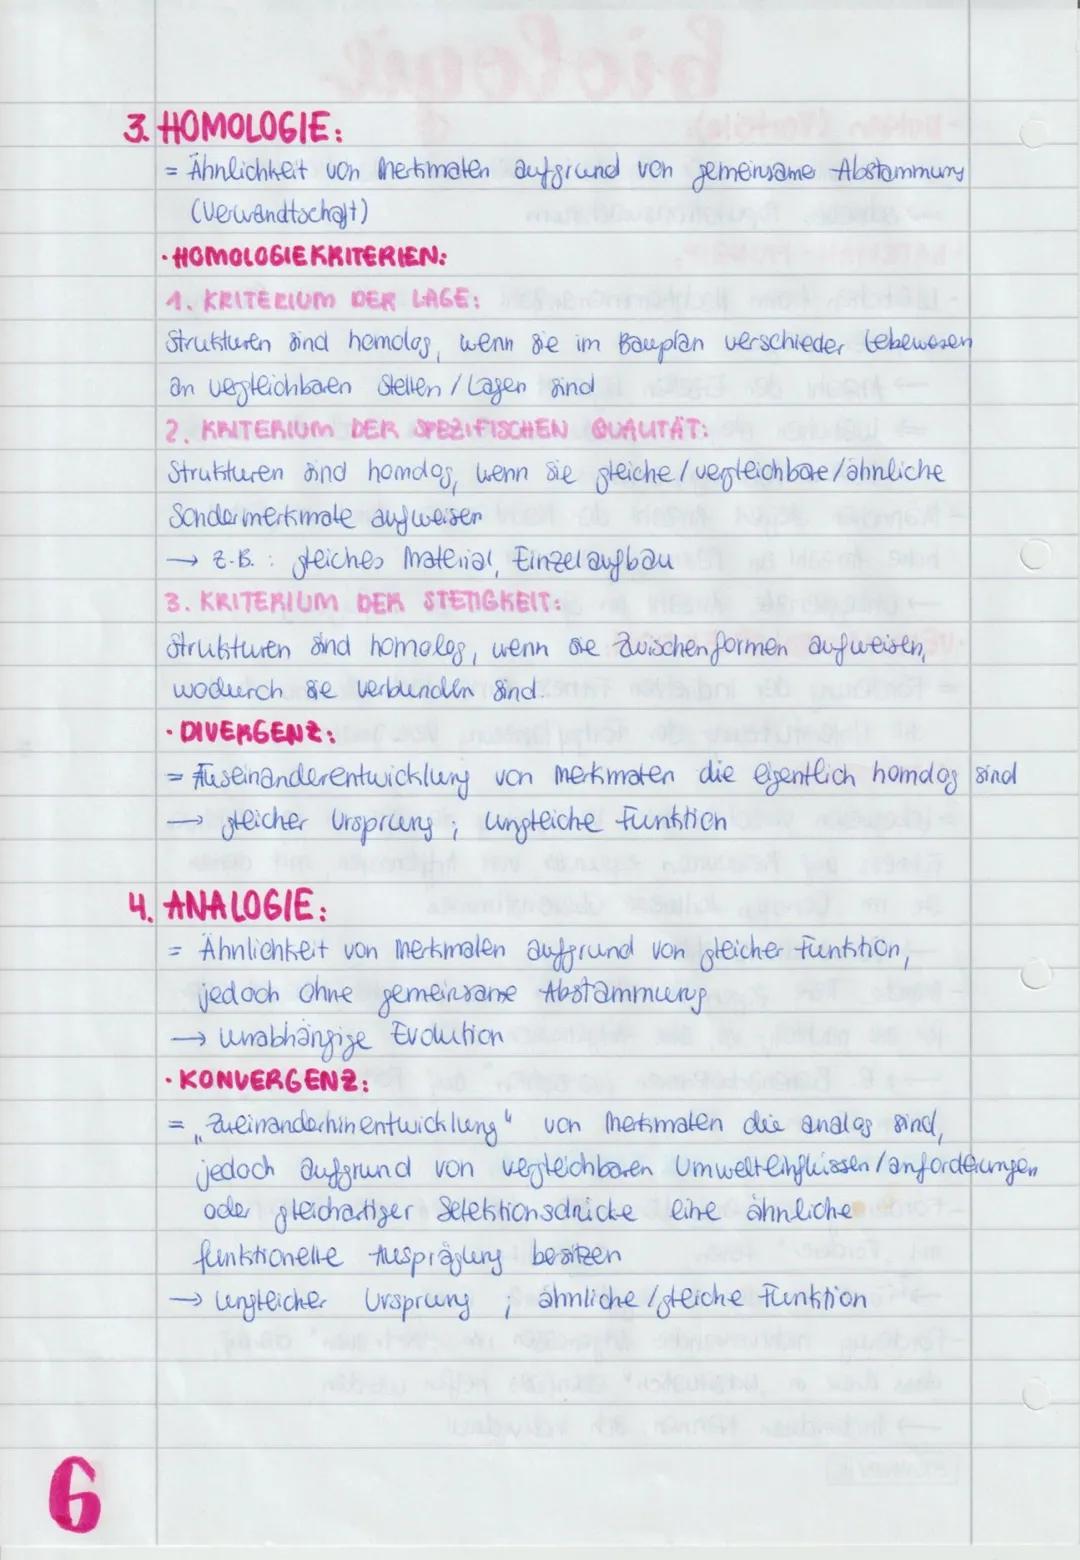 3. HOMOLOGIE:
= Ähnlichkeit von Merkmalen aufgrund von gemeinsame Abstammung
(Verwandtschaft)
· HOMOLOGIEKRITERIEN:
1. KRITERIUM DER LAGE:
Strukturen sind homolog, wenn sie im Bauplan verschieder Lebewesen
an vergleichbaren Stellen / Lagen sind
2. KRITERIUM DER SPEZIFISCHEN QUALITÄT:
Strukturen sind homolog, wenn sie gleiche / vergleichbare / ähnliche
Sondermerkmale aufweisen
→ z.B. : gleiches Material, Einzelaufbau
3. KRITERIUM DER STETIGKEIT:
Strukturen sind homolog, wenn sie Zwischenformen aufweisen,
wodurch sie verbunden sind.
· DIVERGENZ:
= Auseinanderentwicklung von Merkmalen die eigentlich homolog sind
→ gleicher Ursprung ; ungleiche Funktion
4. ANALOGIE:
= Ähnlichkeit von Merkmalen aufgrund von gleicher Funktion,
jedoch ohne gemeinsame Abstammung
→ unabhängige Evolution
· KONVERGENZ:
= „Zueinanderhinentwicklung" von Merkmalen die analog sind,
jedoch aufgrund von vergleichbaren Umwelteinflüssen/anforderungen
oder gleichartiger Selektionsdrücke eine ähnliche
funktionelle Ausprägung besitzen
→ ungleicher Ursprung ; ähnliche / gleiche Funktion
6